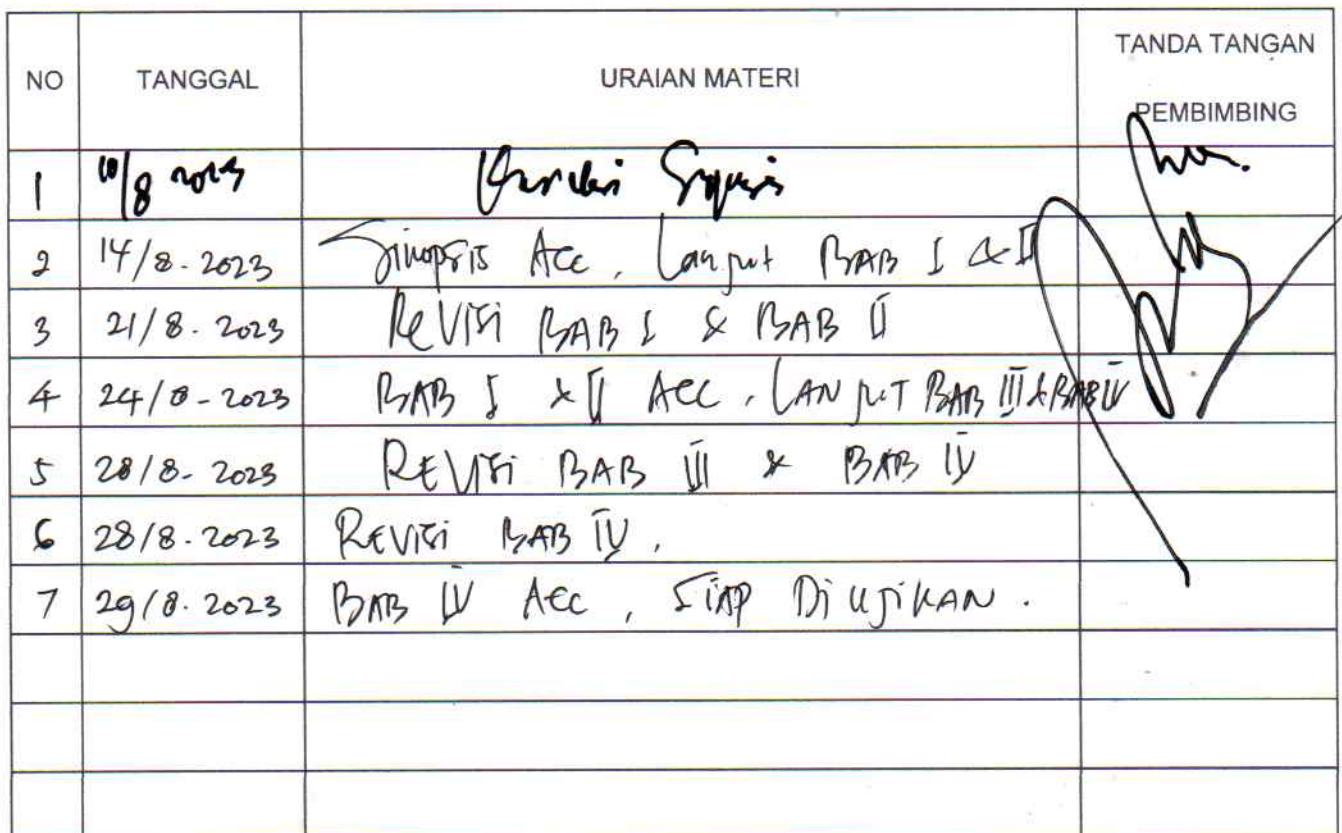 NO TANGGAL URAIAN MATERI TANDA TANGAN PEMBIMBING
1 10/8 2023
2 14/8-2023 Sinopsis Acc, Lanjut BAB I & II
3 21/8-2023 Revisi BAB I & BAB II
4 24/8-2023 BAB I & II Acc, LANJUT BAB III & BAB IV
5 28/8-2023 REVISI BAB III & BAB IV
6 28/8-2023 REVISI BAB IV,
7 29/8-2023 BAB IV Acc, SIAP DiUJiKAN.